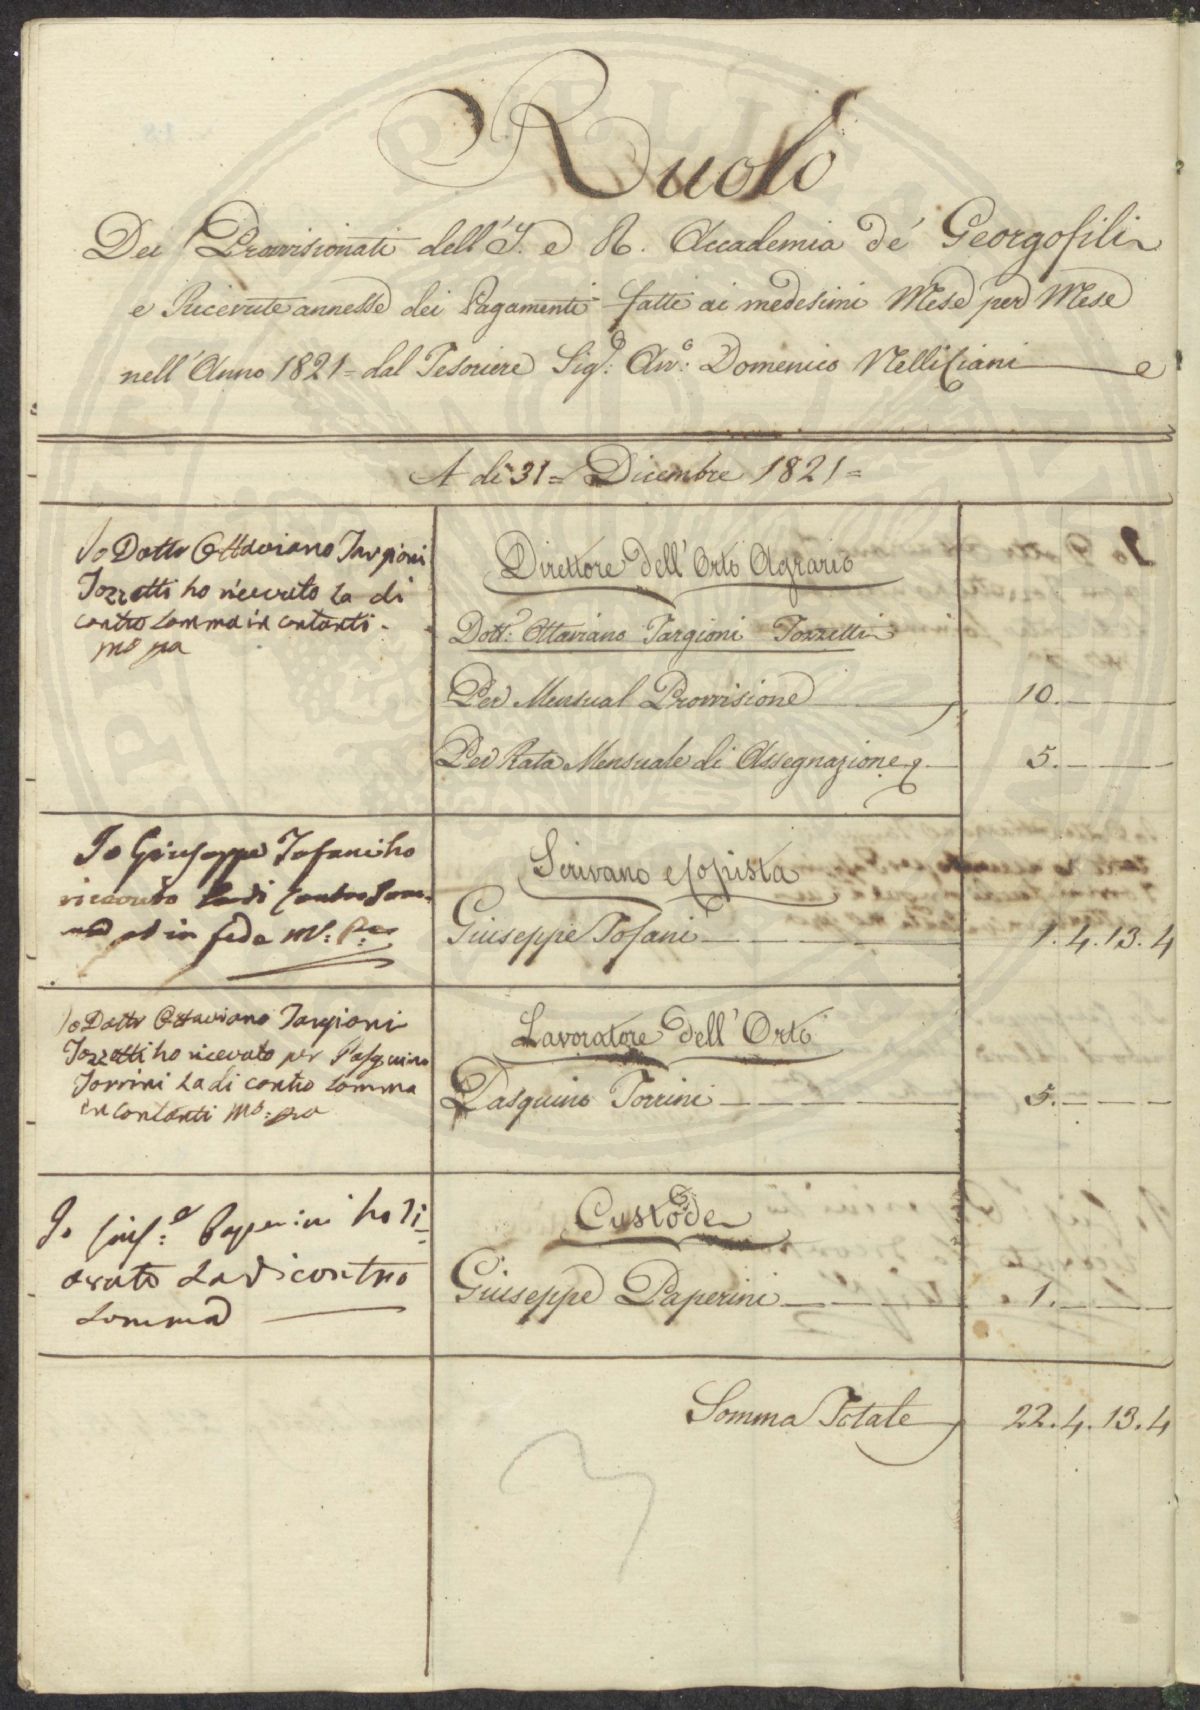 Ruolo
Dei Provvisionati dell' I. e R. Accademia de' Georgofili
e Ricevute annesse dei Pagamenti fatti ai medesimi Mese per Mese
nell' Anno 1821 = dal Tesoriere Sig.e Avv.o Domenico Nelli Ciani
A di 31 = Dicembre 1821 =
Io Dottr Ottaviano Targioni
Tozzetti ho ricevuto la di
contro somma in contanti
mo pa
Direttore dell' Orto Agrario
Dott: Ottaviano Targioni Tozzetti
Per Mensual Provvisione 10. —
Per Rata Mensuale di Assegnazione 5. —
Io Giuseppe Tofani ho
ricevuto la di contro som-
ma ed in fede
Scrivano e Copista
Giuseppe Tofani — 1. 4. 13. 4
Io Dottr Ottaviano Targioni
Tozzetti ho ricevuto per Pasquino
Torrini la di contro somma
in contanti mo: pra
Lavoratore dell' Orto
Pasquino Torrini — 5. —
Io Gius.e Paperini ho ri-
cevuto la di contro
somma
Custode
Giuseppe Paperini — 1. —
Somma Totale 22. 4. 13. 4